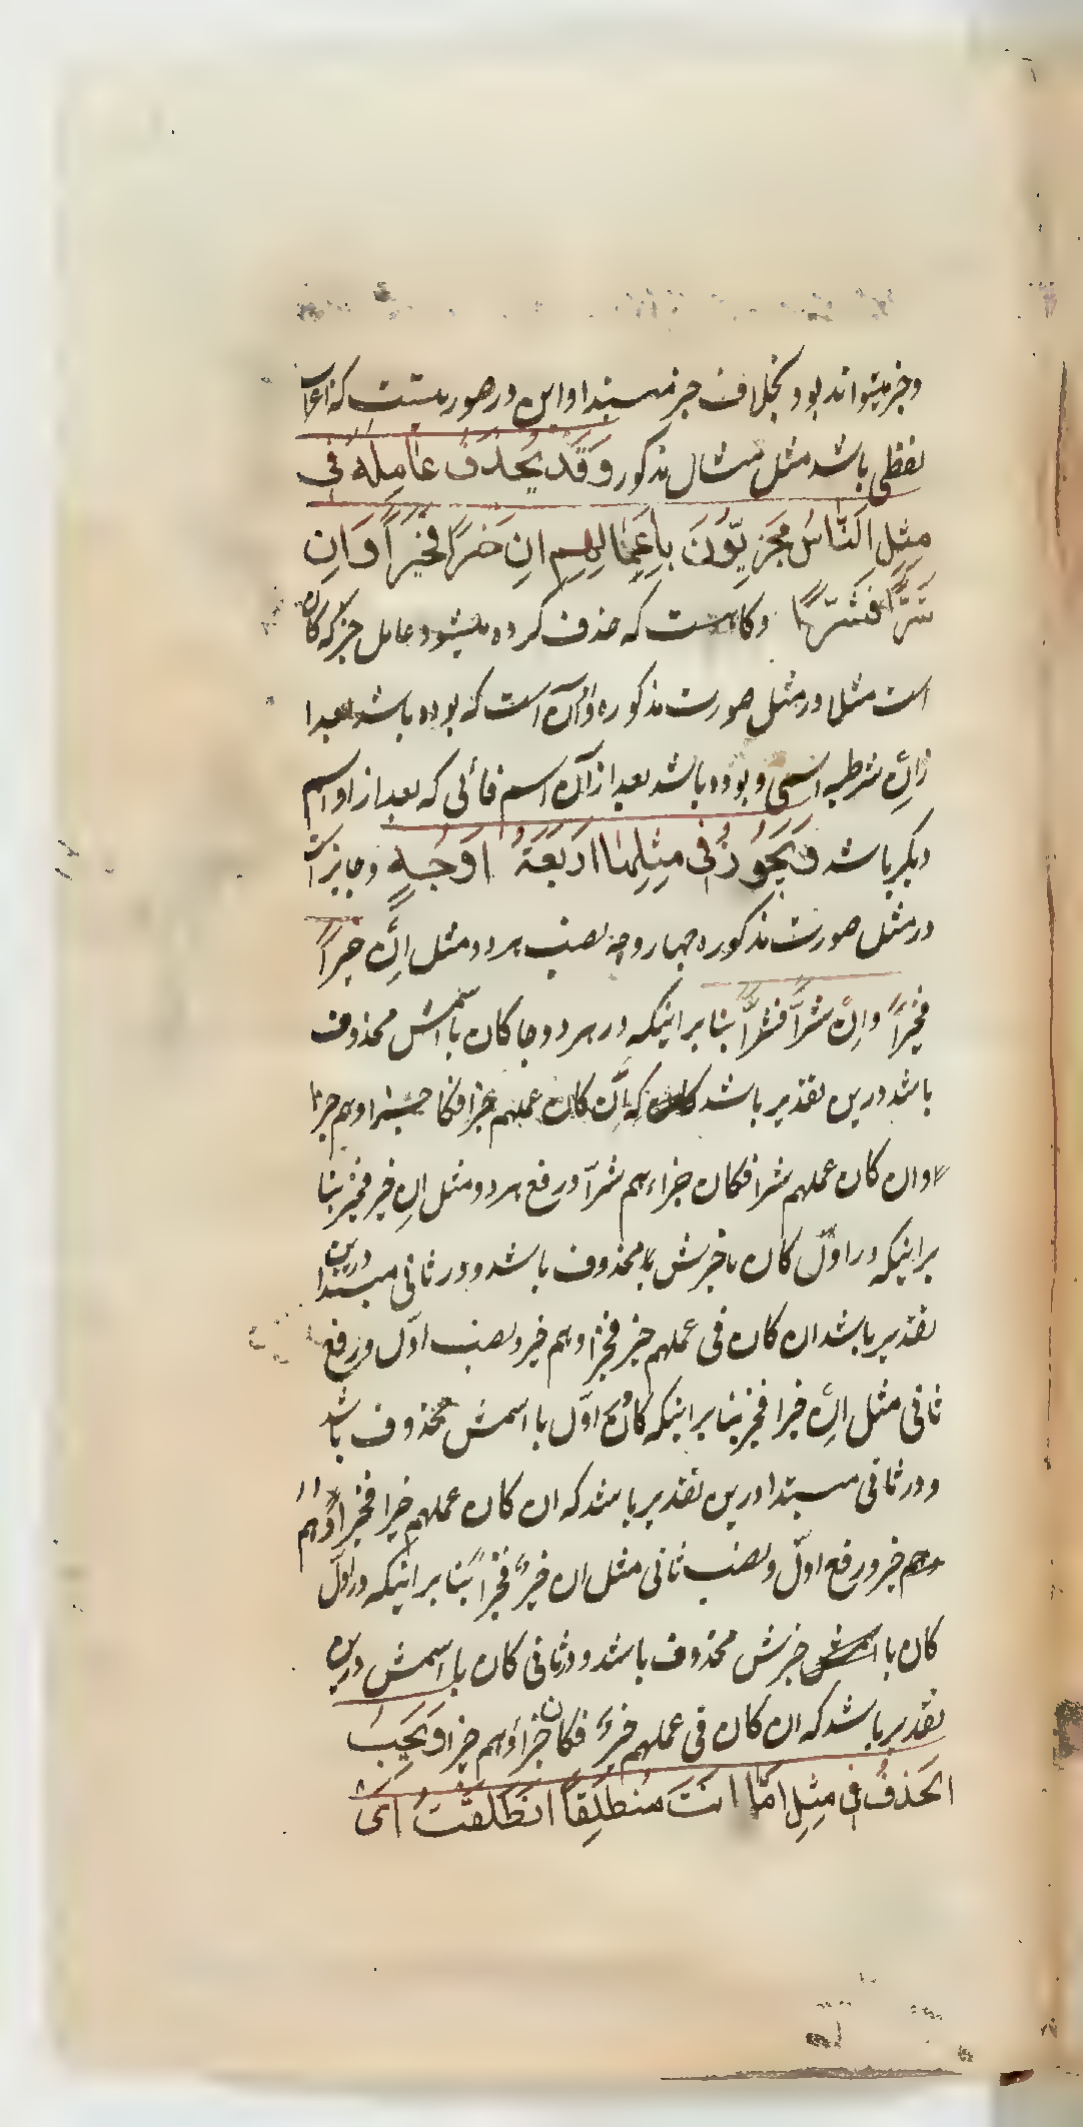 وخبر میتواند بود بخلاف خبر مبتدا و این در صورتیست که اعراب
لفظی باشد مثل مثال مذکور وَقَدْ یُحْذَفُ عَامِلُهُ فی
مِثْلِ اَلنَّاسُ مَجْزِیُّوْنَ بِاَعْمَالِهِمْ اِنْ خَیْرًا فَخَیْرًا وَاِنْ
شَرًّا فَشَرًّا وکاهست که حذف کرده میشود عامل خبر که کان
است مثلا در مثل صورت مذکوره وآن آنست که بوده باشد بعد ا
زاِنْ شرطیه اسمی و بوده باشد بعد از آن اسم فائی که بعد از او اسم
دیگر باشد وَیَجُوْزُ فی مِثْلِهَا اَرْبَعَةُ اَوْجُهٍ وجایز است
در مثل صورت مذکوره چهار وجه نصب هر دو مثل اِنْ خیراً
فخیراً واِنْ شرّاً فشرّاً بنا بر اینکه در هر دو جا کان با اسمش محذوف
باشد درین تقدیر باشد که اِنْ کان عملهم خیرا فکان جزاوهم خیرا
وان کان عملهم شرا فکان جزاءهم شرّا ورفع هر دو مثل اِن خیر فخیر بنا
بر اینکه در اوّل کان با خبرش محذوف باشد و در ثانی مبتدا درین
تقدیر باشد ان کان فی عملهم خیر فجزاوهم خیر ونصب اوّل ورفع
ثانی مثل اِنْ خیرا فخیر بنا بر اینکه کان اوّل با اسمش محذوف باشد
و در ثانی مبتدا درین تقدیر باشد که ان کان عملهم خیرا فجزاؤهم
خیر ورفع اوّل ونصب ثانی مثل ان خیرٌ فخیراً بنا بر اینکه در اوّل
کان با خبرش محذوف باشد و در ثانی کان با اسمش درین
تقدیر باشد که ان کان فی عملهم خیرٌ فکان جزاؤهم خیرا وَیَجِبُ
الحَذْفُ فی مِثْلِ اَمَّا اَنْتَ مُنْطَلِقاً انْطَلَقْتُ اَیْ